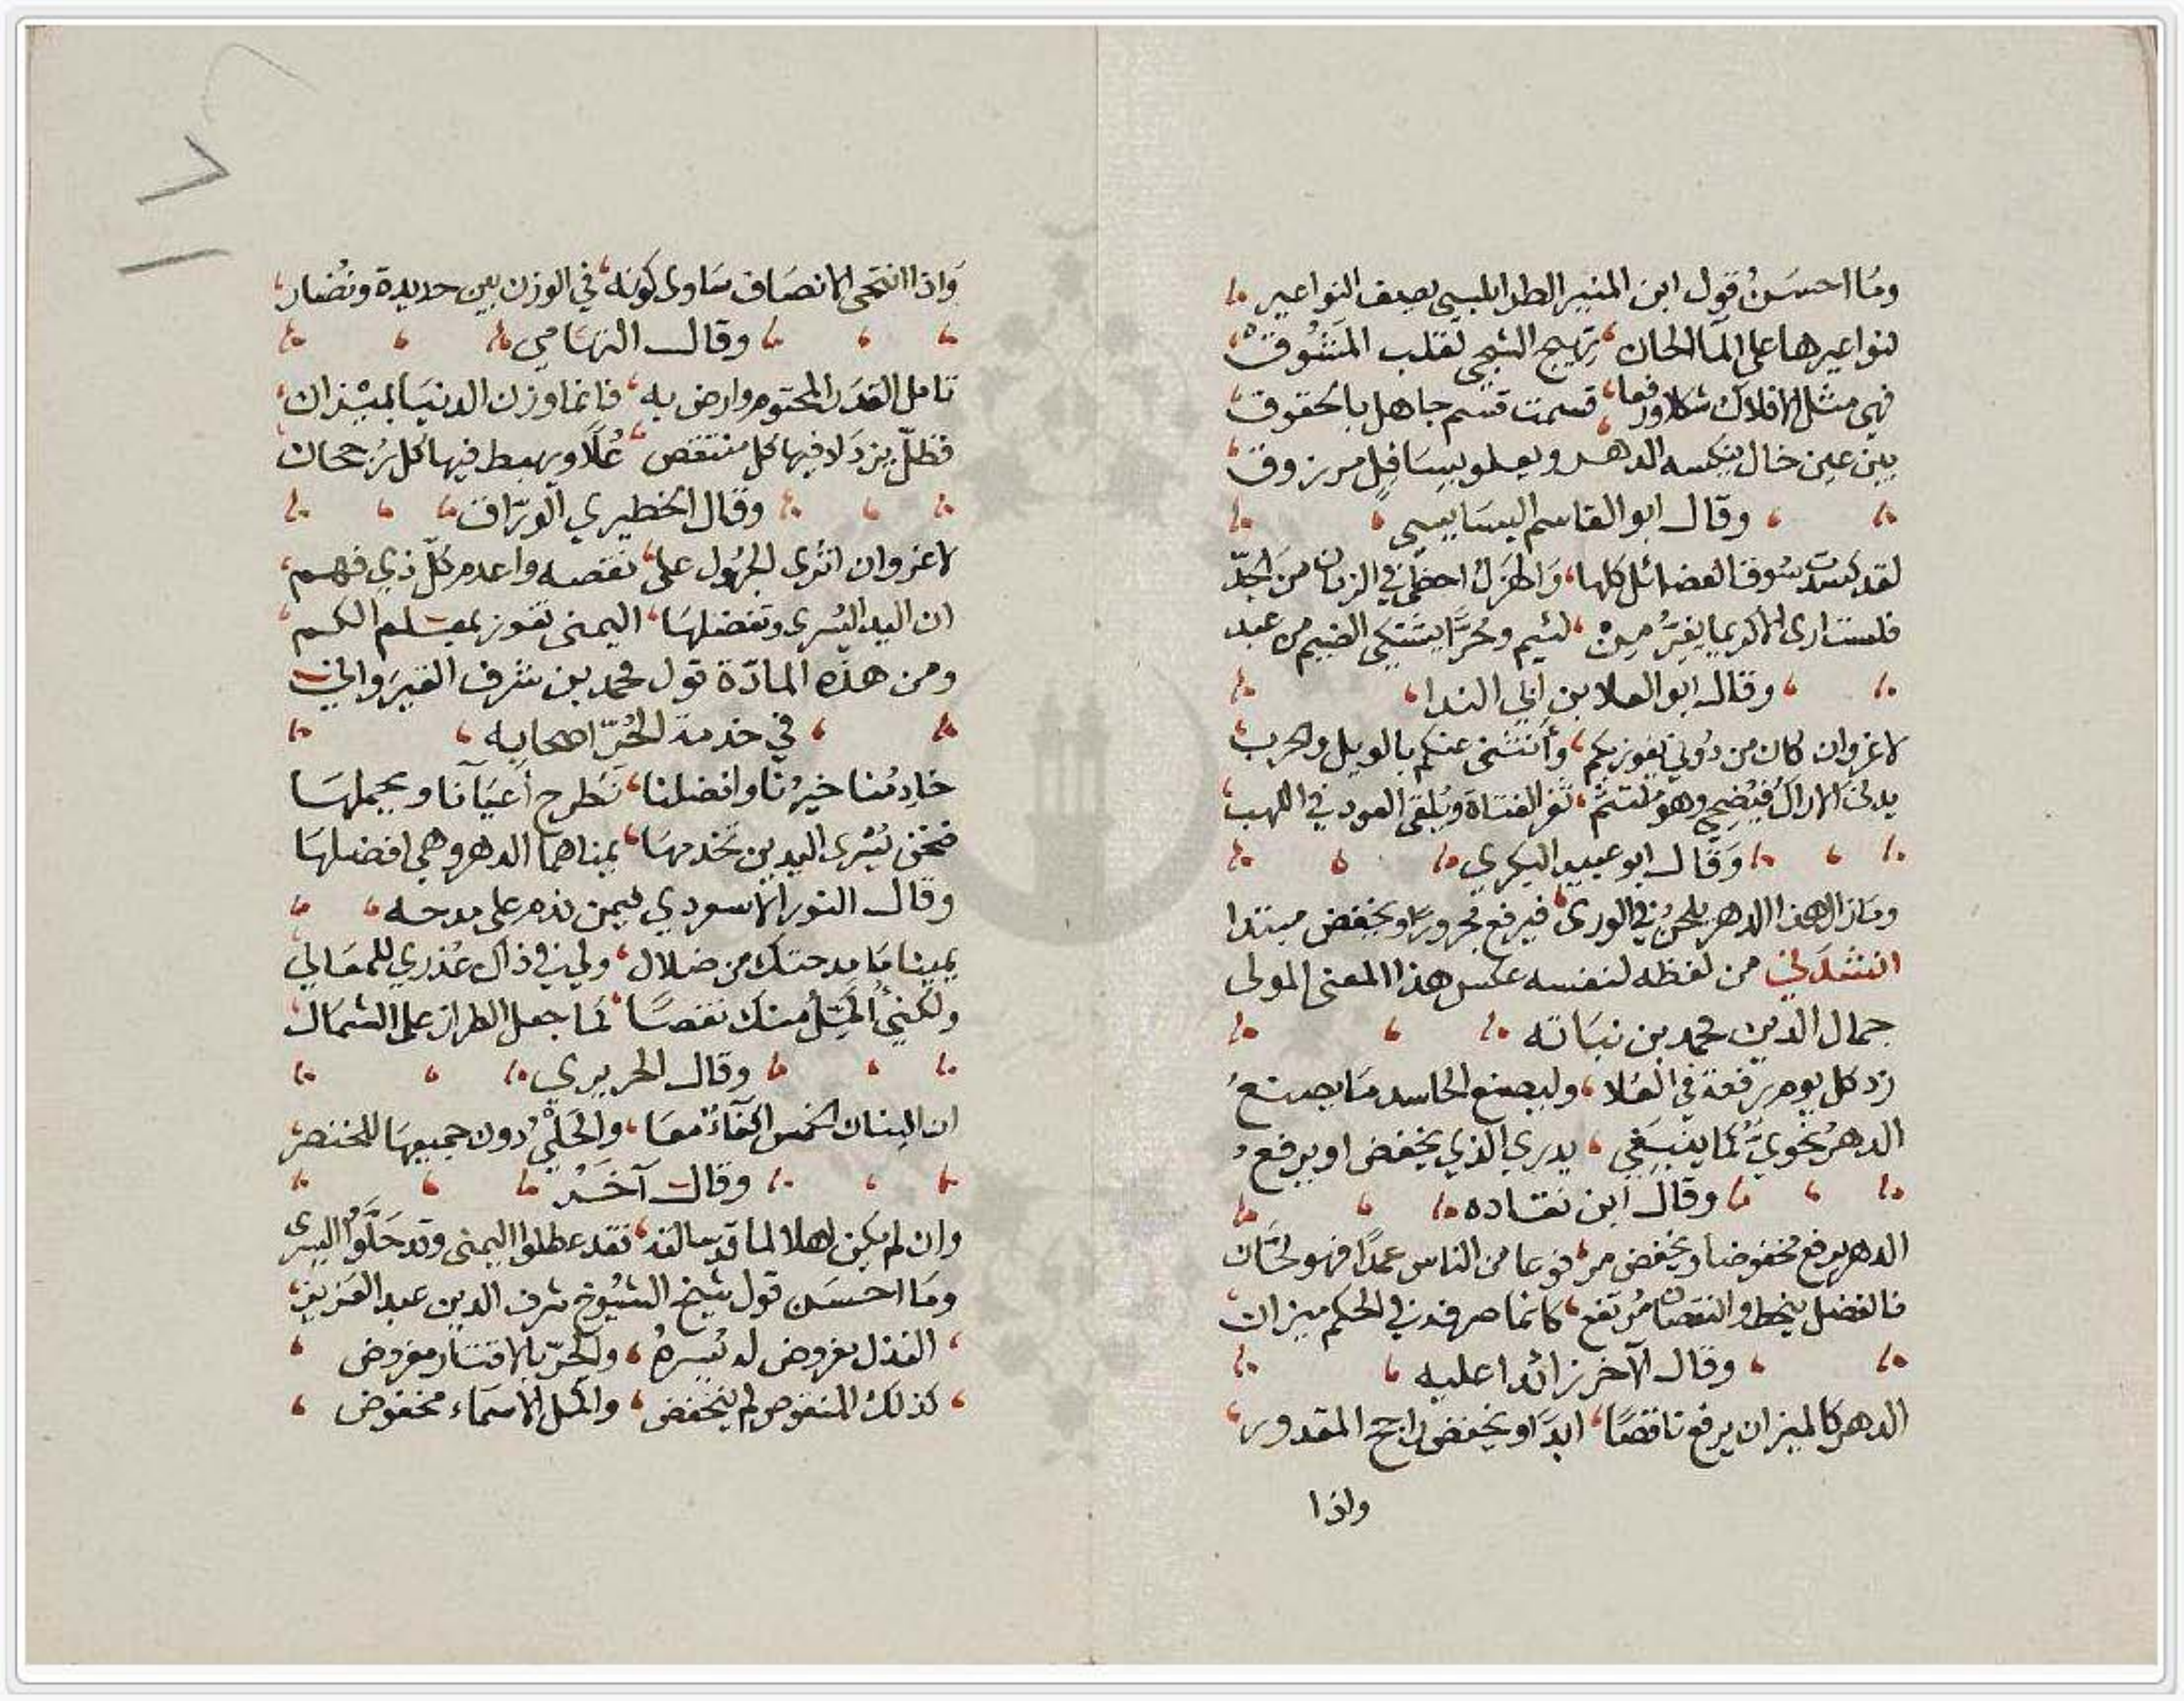 ومَا احسَنُ قول ابن المنير الطرابلسي يصف النواعير
لنواعيرها على المآ الحان ، تهيج الشجى لقلب المَشُوقْ
فهي مثل الافلاك شكلا وفعا ، قسمت قسم جاهل بالحقوق
بين عين خال ينكسه الدهر ويعلو بسَافِلٍ مرزوق
وقال ابو القاسم البسَابسي
لقد كسدت سُوق الفضائل كلها ، وَالهَزلُ احظى في الزمان من الجدّ
فلست ارى الا كريما يفِرُّ مِنْ ، لئيم وحُرًّا يشتكي الضيم من عبد
وقال ابو العلا بن ابي الندا
لا غرو ان كان من دُوني يفوز بكم ، وأنثنى عنكم بالويل والحرب
يدنى الاراك فيُضحي وهو ملتثم ، ثغر الفتاة ويُلقى العود في اللهب
وَقال ابو عبيد البكري
ومَا زال هذا الدهر يلحنُ في الورى ، فيرفع مجرورًا ويخفض مبتدا
انشدَني من لفظه لنفسه عكس هذا المعنى المولى
جمال الدين محمد بن نبَاته
زد كل يوم رفعة في العُلا ، وليصنع الحاسد مَا يصنعُ
الدهرُ نحويٌّ كما ينبغي ، يدري الذي يخفض او يرفع
وقال ابن نقاده
الدهر يرفع مخفوضا ويخفض مرفوعا من الناس عمدًا فهو لحَّان
فالفضل ينحط والنقصان مُرتفع ، كانما صرفه في الحكم ميزان
وقال الآخر زائدا عليه
الدهر كالميزان يرفع ناقصًا ، ابدًا ويخفض راجح المقدور
واذا
وَاذا انتحى الانصَاف سَاوى كونه ، في الوزن بين حديدة ونُضار
وقال التهَامي
تامل القدَر المحتوم وارض به ، فانما وزن الدنيَا بميْزان
فظلّ بزدَلا فيها كل منتقص ، عُلًا ويهبط فيها كل رُجحان
وقال الخطيري الورّاق
لا غرو ان اثرى الجهُول على ، نقصه واعدم كلّ ذي فهم
ان اليد اليُسرى وتفضلهَا ، اليمنى تفوز بمعْلم الكم
ومن هذه المادّة قول محمد بن شرف القيرَواني
في خدمة الحُرّ اصحابه
خادِمُنا خيرُنا وافضلنا ، نَطرح أعيَآنا ويحملهَا
فنحن يُسرى اليدين تخدمهَا ، يمناهما الدهر وهي افضلهَا
وقال النور الاسعردي فيمن ذم على مدحه
يمينا مَا مدحتك من ضلال ، ولي في ذاك عُذري للمعَالي
ولكنى المثل منك نقصًا ، لما جعل الطراز على الشمَال
وقال الحريري
ان البنان الخمس اكفاءٌ معَا ، والحَلْيُ دون جميعهَا للخنصر
وقال آخَر
وان لم يكن اهلا لما قد سالقه ، فقد عطلوا اليمنى وقد حَلَّوا اليسرى
ومَا احسَن قول شيخ الشيُوخ شرف الدين عبد العزيز
النذل مفروض له يُسرهُ ، والحرّ بالاقتار مفروض
كذلك المنقوص لم ينخفض ، واكمل الاسمَاء مخفوض